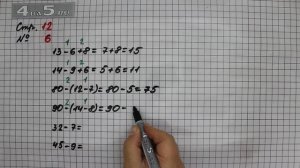 4 на 5 .ru
Стр. 12
№ 6
1 2
13-6+8= 7+8=15
1 2
14-9+6= 5+6=11
2 1
80-(12-7)= 80-5=75
2 1
90-(14-8)=90-
32-7=
45-9=